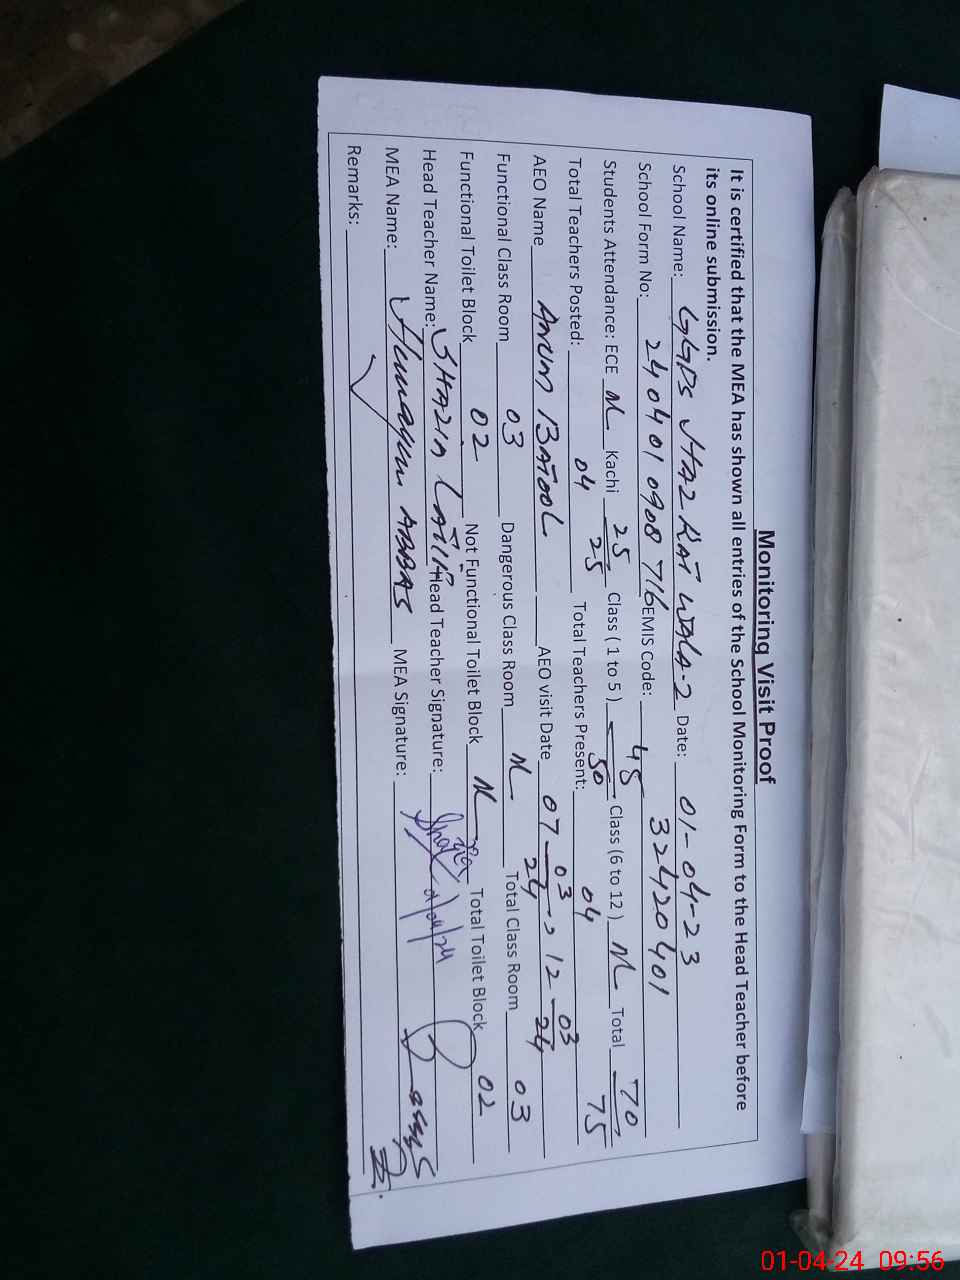 Monitoring Visit Proof
It is certified that the MEA has shown all entries of the School Monitoring Form to the Head Teacher before
its online submission.
School Name: GGPS HAZ WALA-2 Date: 01-04-23
School Form No: 240401 0908 716 EMIS Code: 32420401
Students Attendance: ECE N Kachi 25/25 Class ( 1 to 5 ) 45/50 Class (6 to 12 ) N Total 70/75
Total Teachers Posted: 04 Total Teachers Present: 04
AEO Name ANUM BATOOL AEO visit Date 07-03-24, 12-03-24
Functional Class Room 03 Dangerous Class Room N Total Class Room 03
Functional Toilet Block 02 Not Functional Toilet Block N Total Toilet Block 02
Head Teacher Name: SHAZIA LATIF Head Teacher Signature: 1/04/24
MEA Name: Humayun ABBAS MEA Signature:
Remarks:
01-04-24 09:56